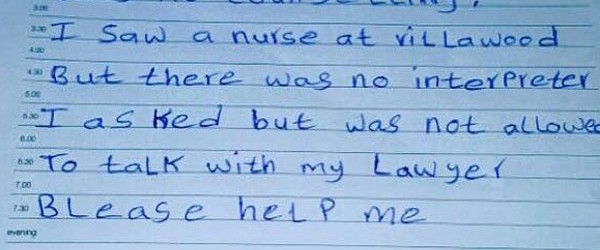 3.30 I saw a nurse at villawood
4.00
4.30 But there was no interpreter
5.00
5.30 I asked but was not allowed
6.00
6.30 To talk with my Lawyer
7.00
7.30 BLease heLP me
evening